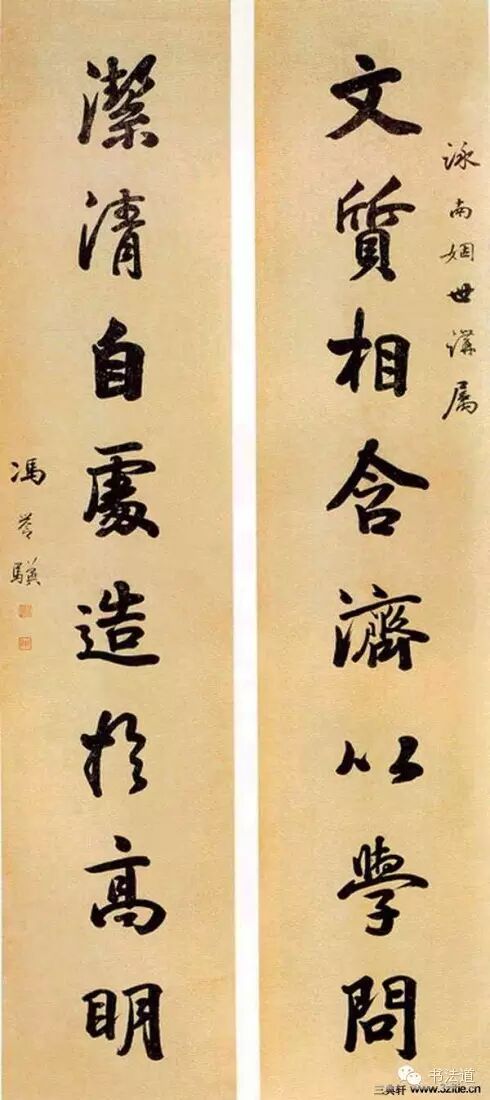 泳南姻世講属
文質相含濟以學問
潔清自處造於高明
馮譽驥
书法道
三典轩 www.3zitie.cn